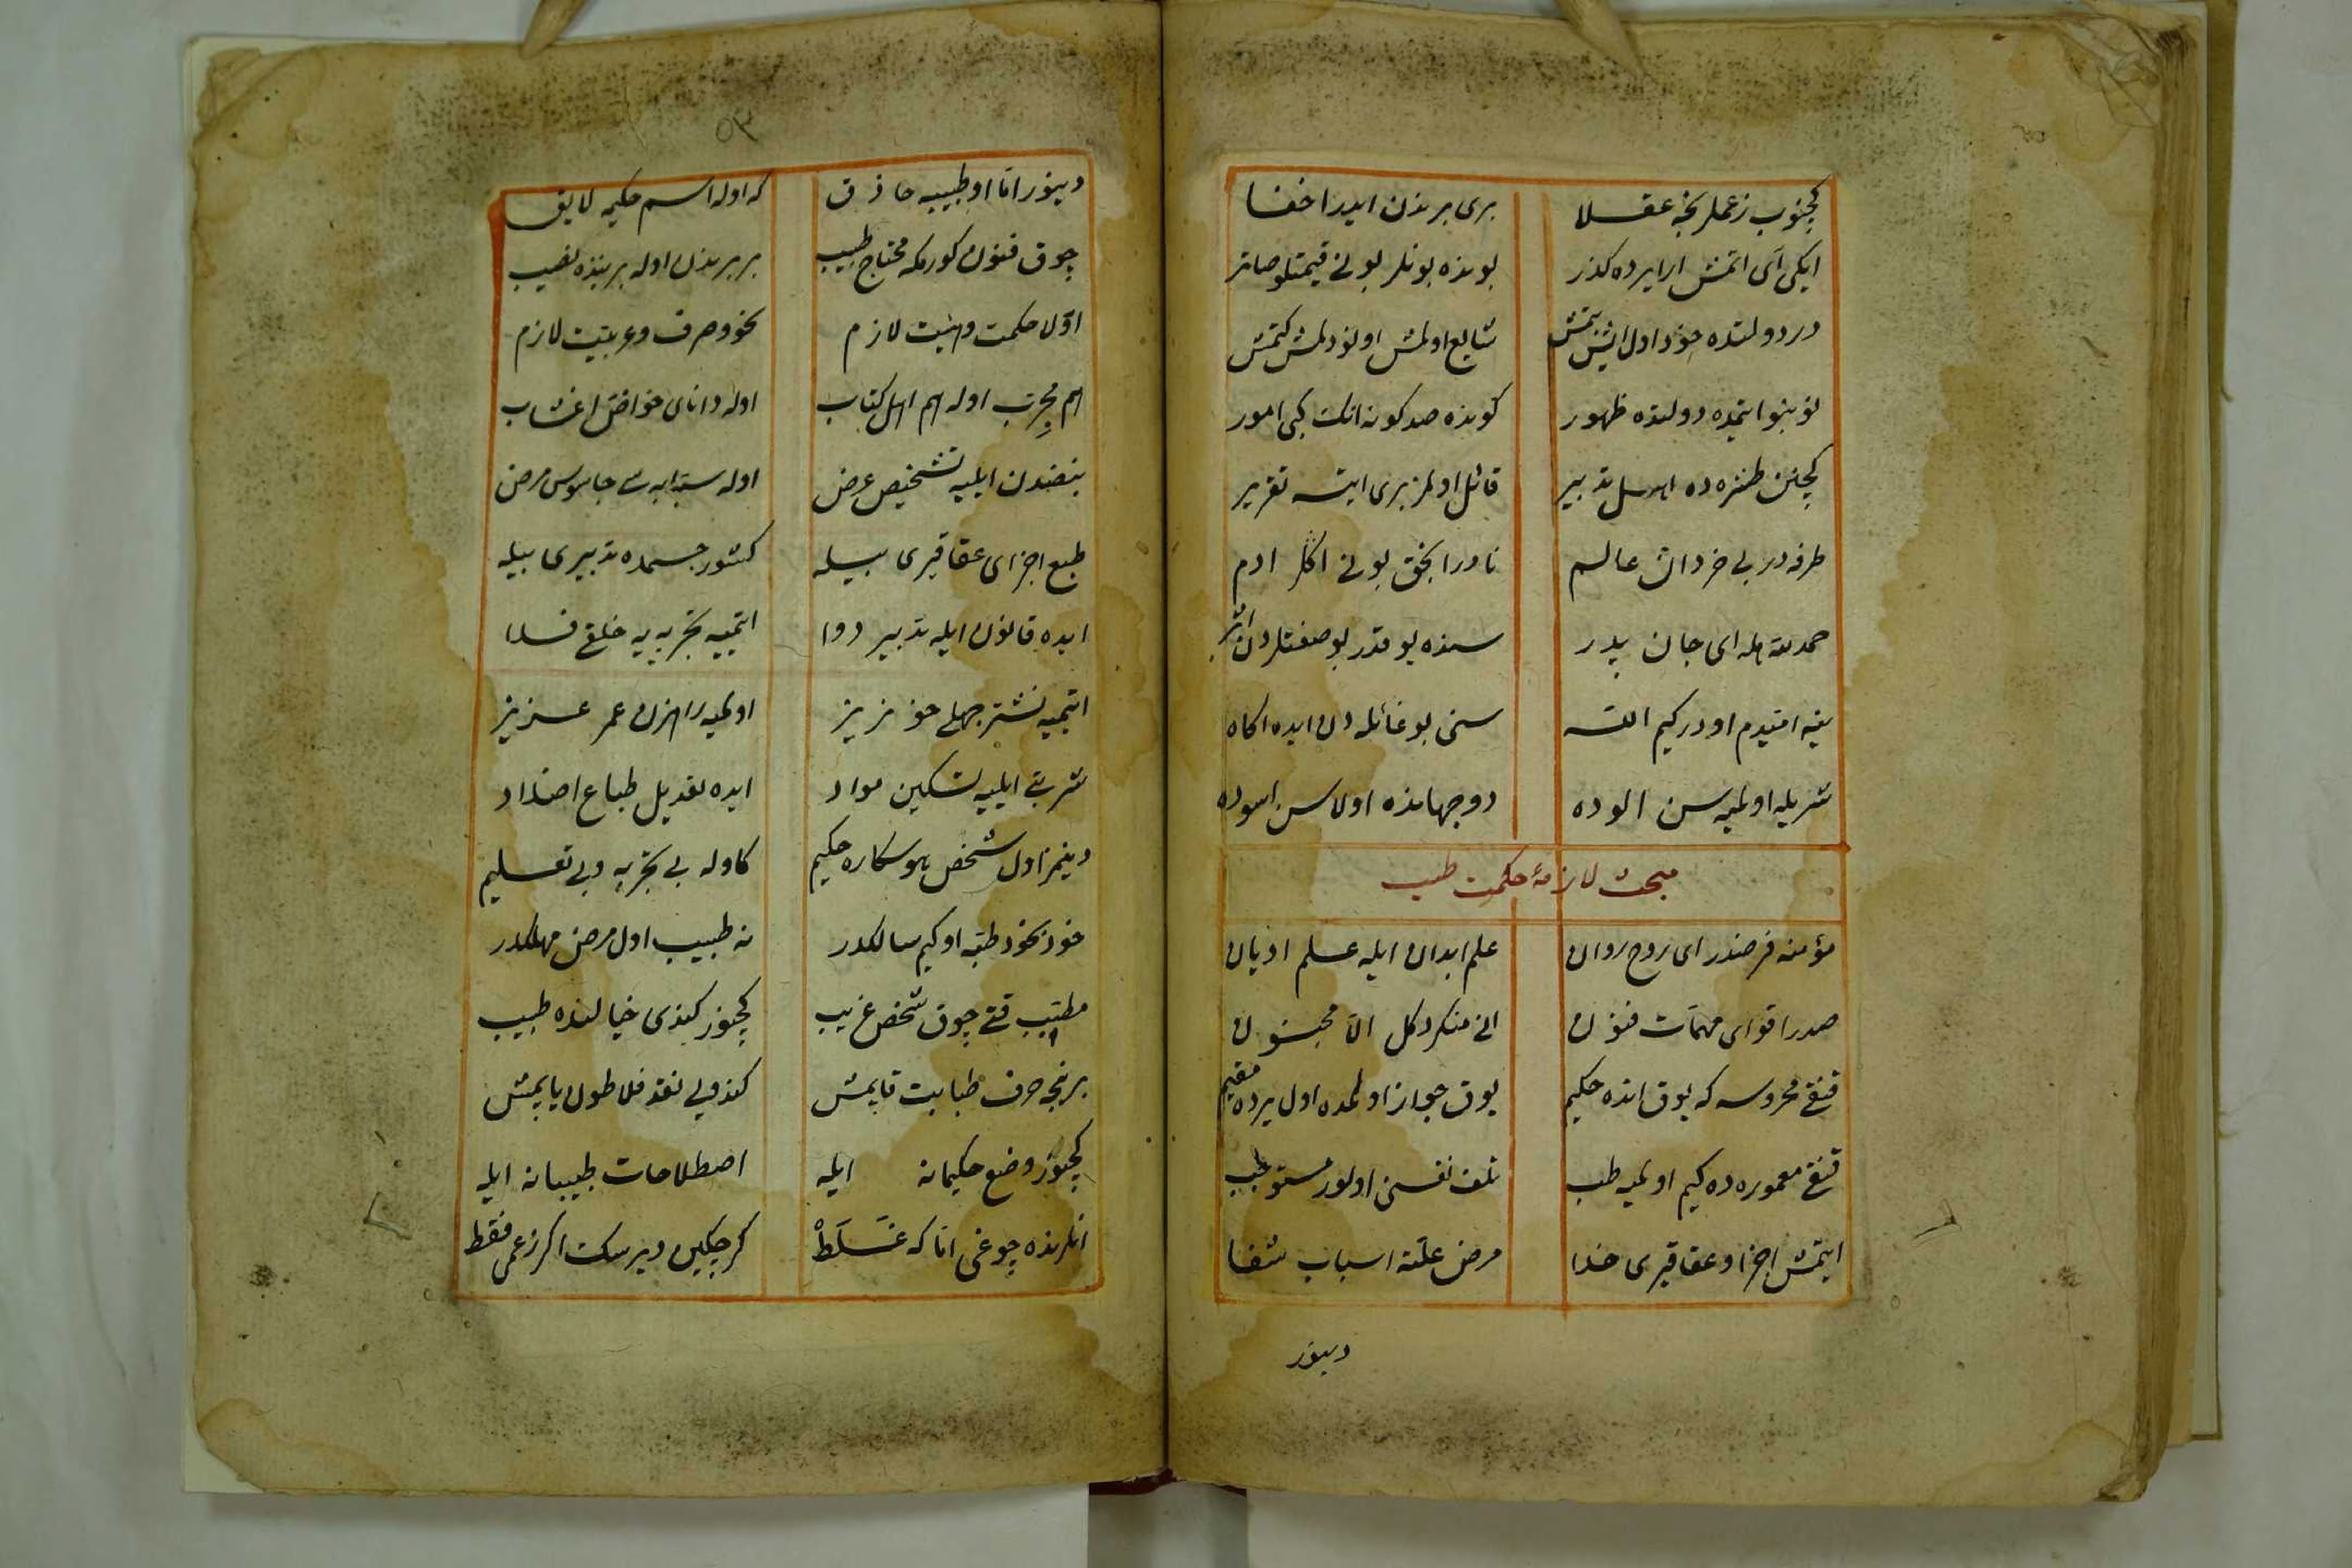 كچنوب زعملرنجه عقلا بری برندن ایدر اخفا
ایكی آی اتمش ارایرده كذر بونده بونلر بونی قیمتلو صاتر
در دولتده خود اول ایش بتمش شایع اولمش اونودلمش كتمش
نو بنو ایتمده دولتده ظهور كونده صد كونه انك كبی امور
كچنن طنزه ده اهل تدبیر قائل اولمز بری ایتسه تقریر
طرفه در بی خردان عالم نادرا بخق بونی اكلر ادم
حمد لله هله ای جان پدر سنده یوقدر بو صفتلردن اثر
ینه امیدم اودر كیم الله سنی بو غائله دن ایده اكاه
شریله اولمیه سن الوده دو جهانده اولاسن اسوده
مبحث لازمهٔ حكمت طب
مؤمنه فرضدر ای روح روان علم ابدان ایله علم ادیان
صدر اقوای مهمات فنون انی منكر دكل الا مجنون
قنغی محروسه كه یوق انده حكیم یوق جواز اولمده اول یرده مقیم
قنغی معموره ده كیم اولمیه طب تلف نفسنی اولور مستوجب
ایتمش اجزا و عقاقیری خدا مرض علتنه اسباب شفا
دینور
٥٣
دینور اكا او طبیبه حاذق كه اوله اسم حكیمه لایق
چوق فنون كورمكه محتاج طبیب بر برندن اوله برینده نصیب
اولا حكمت و هیئت لازم نحو و صرف و عربیت لازم
هم مجرب اوله هم اهل كتاب اوله دانای خواص اعشاب
نبضدن ایلیه تشخیص عرض اوله سبابه سی جاسوس مرض
طبع اجزای عقاقیری بیله كشور جسمده تدبیری بیله
ایده قانون ایله تدبیر دوا ایتمیه تجربه یه خلقی فدا
ایتمیه نشتر جهلی خونریز اولمیه راهزن عمر عزیز
شربتی ایلیه تسكین مواد ایده تعدیل طباع اضداد
دینمز اول شخص هوسكاره حكیم كاوله بی تجربه و بی تعلیم
خود بخود طبه او كیم سالكدر نه طبیب اول مرض مهلكدر
متطبب قتی چوق شخص غریب كچنور كندی خیالنده طبیب
بر نیجه حرف طبابت قاپمش كندویی نقد فلاطون یاپمش
كچنور وضع حكیمانه ایله اصطلاحات طبیبانه ایله
انلرنده چوغی اما كه غلط كرچكین دیرسك اكر زعمی فقط